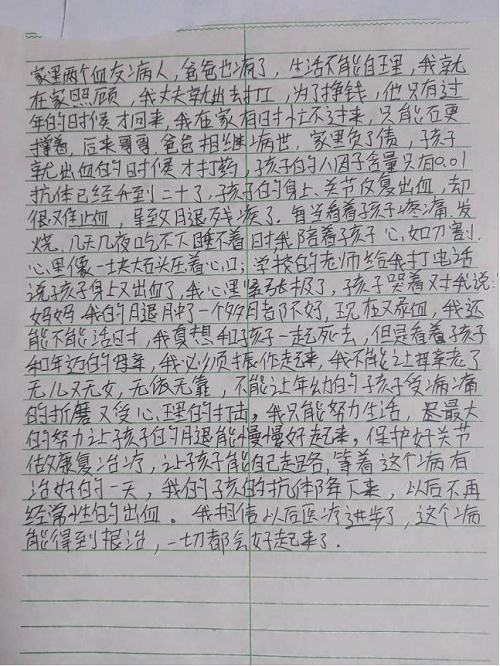 家里两个血友病人，爸爸也病了，生活不能自理，我就
在家照顾，我丈夫就出去打工，为了挣钱，他只有过
年的时候才回来，我在家有时忙不过来，只能咬
撑着，后来哥哥、爸爸相继病世，家里负了债，孩子
就出血的时候才打药，孩子的八因子含量只有0.01
抗体已经升到二十了，孩子的身上、关节反复出血，却
很难止血，导致月退残疾了。每当看着孩子疼痛、发
烧、几天几夜吃不下睡不着时我陪着孩子心如刀割、
心里像一块大石头压着心口；学校的老师给我打电话
说孩子身上又出血了，我心里紧张极了，孩子哭着对我说：
妈妈我的月退肿了一个多月者阝不好，现在又尿血，我还
能不能活时，我真想和孩子一起死去，但是看着孩子
和年迈的母亲，我必须振作起来，我不能让母亲老了
无儿又无女，无依无靠，不能让年幼的子孩子受病痛
的折磨又受心理的打击。我只能努力生活，尽最大
的努力让孩子的月退能慢慢好起来。保护好关节
做康复治疗，让孩子能自己走路，等着这个病有
治好的一天，我的子孩的抗体降下来，以后不再
经常性的出血。我相信以后医疗进步了，这个病
能得到根治，一切都会好起来了.